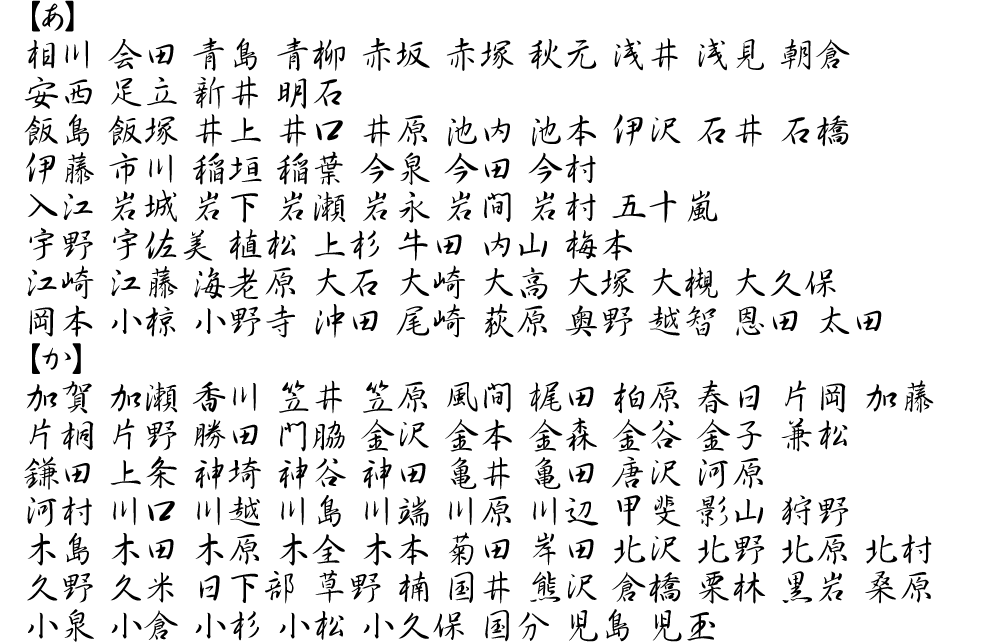 【あ】
相川 会田 青島 青柳 赤坂 赤塚 秋元 浅井 浅見 朝倉
安西 足立 新井 明石
飯島 飯塚 井上 井口 井原 池内 池本 伊沢 石井 石橋
伊藤 市川 稲垣 稲葉 今泉 今田 今村
入江 岩城 岩下 岩瀬 岩永 岩間 岩村 五十嵐
宇野 宇佐美 植松 上杉 牛田 内山 梅本
江崎 江藤 海老原 大石 大崎 大高 大塚 大槻 大久保
岡本 小椋 小野寺 沖田 尾崎 荻原 奥野 越智 恩田 太田
【か】
加賀 加瀬 香川 笠井 笠原 風間 梶田 柏原 春日 片岡 加藤
片桐 片野 勝田 門脇 金沢 金本 金森 金谷 金子 兼松
鎌田 上条 神埼 神谷 神田 亀井 亀田 唐沢 河原
河村 川口 川越 川島 川端 川原 川辺 甲斐 影山 狩野
木島 木田 木原 木全 木本 菊田 岸田 北沢 北野 北原 北村
久野 久米 日下部 草野 楠 国井 熊沢 倉橋 栗林 黒岩 桑原
小泉 小倉 小杉 小松 小久保 国分 児島 児玉